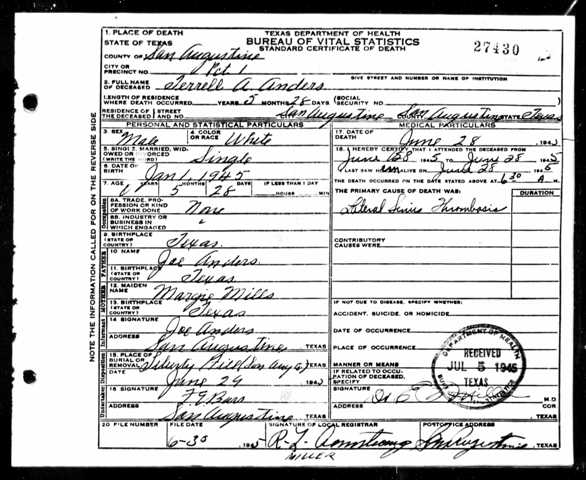 TEXAS DEPARTMENT OF HEALTH
BUREAU OF VITAL STATISTICS
STANDARD CERTIFICATE OF DEATH
27430
1. PLACE OF DEATH
STATE OF TEXAS
COUNTY OF San Augustine
CITY OR PRECINCT NO. Pct 1
GIVE STREET AND NUMBER OR NAME OF INSTITUTION
2. FULL NAME OF DECEASED Terrell A. Anders
LENGTH OF RESIDENCE WHERE DEATH OCCURRED YEARS 5 MONTHS 28 DAYS SOCIAL SECURITY NO.
RESIDENCE OF THE DECEASED STREET San Augustine San Augustine STATE Texas
PERSONAL AND STATISTICAL PARTICULARS
MEDICAL PARTICULARS
3. SEX Male
4. COLOR OR RACE White
5. SINGLE MARRIED, WIDOWED OR DIVORCED (WRITE THE WORD) Single
6. DATE OF BIRTH Jan 1 1945
7. AGE 5 28 IF LESS THAN 1 DAY
8A. TRADE, PROFESSION OR KIND OF WORK DONE None
8B. INDUSTRY OR BUSINESS IN WHICH ENGAGED
9. BIRTHPLACE (STATE OR COUNTRY) Texas
FATHER
10. NAME Joe Anders
11. BIRTHPLACE (STATE OR COUNTRY) Texas
MOTHER
12. MAIDEN NAME Margie Mills
13. BIRTHPLACE (STATE OR COUNTRY) Texas
14. SIGNATURE Joe Anders
ADDRESS San Augustine TEXAS
15. PLACE OF BURIAL OR REMOVAL (San Aug) TEXAS
DATE June 29 194
16. SIGNATURE
ADDRESS San Augustine TEXAS
17. DATE OF DEATH June 28 194
18. I HEREBY CERTIFY THAT I ATTENDED THE DECEASED FROM
June 28 1945 TO June 28 1945
I LAST SAW ALIVE ON June 28 1945
THE DEATH OCCURRED ON THE DATE STATED ABOVE AT 6 30 A M.
THE PRIMARY CAUSE OF DEATH WAS:
DURATION
Lateral Sinus Thrombosis
CONTRIBUTORY CAUSES WERE:
IF NOT DUE TO DISEASE, SPECIFY WHETHER:
ACCIDENT, SUICIDE, OR HOMICIDE
DATE OF OCCURRENCE
PLACE OF OCCURRENCE
MANNER OR MEANS
IF RELATED TO OCCUPATION OF DECEASED, SPECIFY
SIGNATURE M.D.
ADDRESS TEXAS
RECEIVED
JUL 5 1945
TEXAS
20 FILE NUMBER
FILE DATE 6-30 1945
SIGNATURE OF LOCAL REGISTRAR R. L. Armstrong
POSTOFFICE ADDRESS San Augustine, TEXAS
MILLER
NOTE THE INFORMATION CALLED FOR ON THE REVERSE SIDE